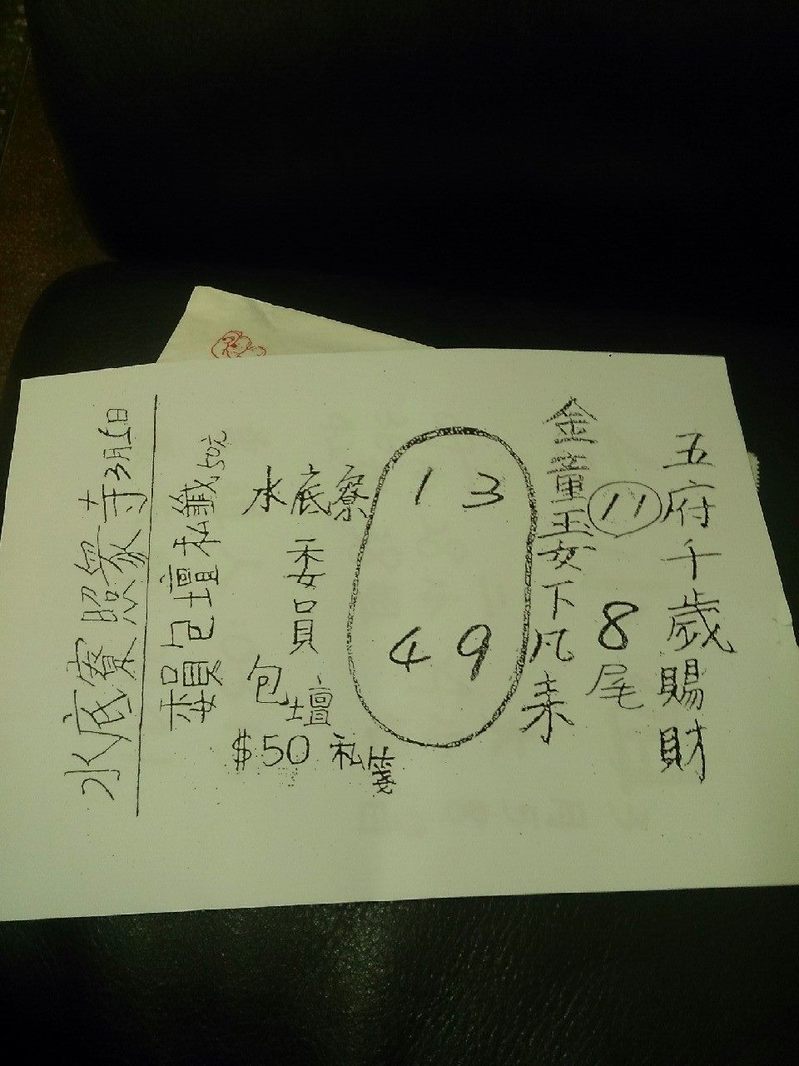 五府千歲賜財
11
8尾
金童玉女下凡来
1 3
4 9
水底寮
委員
包壇
$50 私箋
委員包壇私籤50元
水底寮 照衆寺3月日